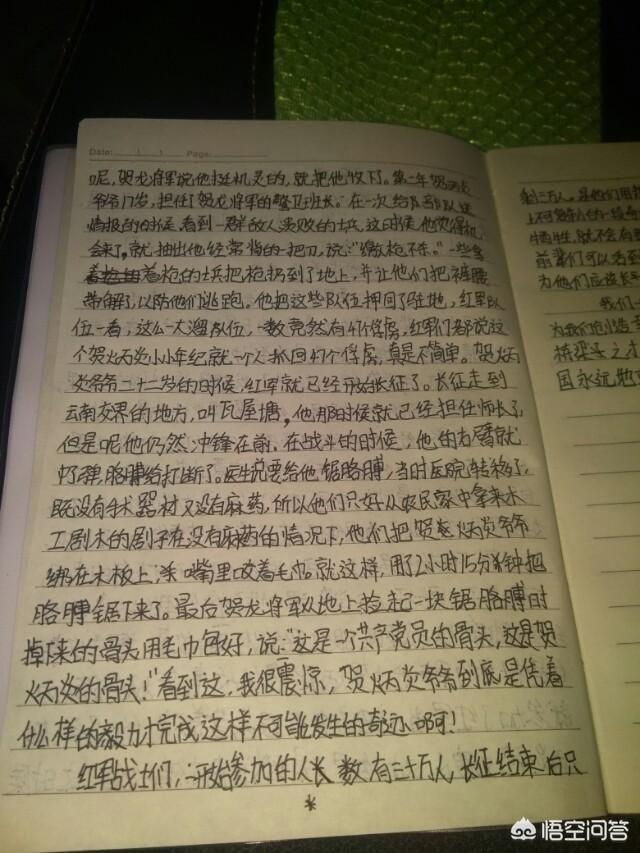 Date: Page:
呢,贺龙将军说他挺机灵的,就把他收下。第二年贺炳炎
爷爷17岁,担任了贺龙将军的警卫班长。在一次给部队送
情报的时候,看到一群敌人溃败的士兵,这时候,他觉得机
会来了,就抽出他经常背的一把刀,说:“缴枪不杀。”一些拿
着枪的士兵把枪扔到了地上,并让他们把裤腰
带解了,以防他们逃跑。他把这些队伍押回了驻地,红军队
位一看,这么一大溜队位,一数竟然有47个俘虏,红军们都说这
个贺炳炎小小年纪就一个人抓回47个俘虏,真是不简单。贺炳
炎爷爷二十二岁的时候,红军就已经开始长征了。长征走到
云南交界的地方,叫瓦屋塘,他那时候就已经担任师长了,
但是呢他仍然冲锋在前,在战斗的时候,他的右臂就
中了弹,胳膊给打断了。医生说要给他锯胳膊,当时医院转移了,
既没有手术器材又没有麻药,所以他们只好从农民家中拿来木
工剧木的剧子在没有麻药的情况下,他们把贺炳炎爷爷
绑在木板上,嘴里咬着毛巾就这样,用了2小时15分钟把
胳膊锯下来了。最后贺龙将军从地上捡起一块锯胳膊时
掉下来的骨头用毛巾包好,说:“这是一个共产党员的骨头,这是贺
炳炎的骨头!”看到这,我很震惊,贺炳炎爷爷到底是凭着
什么样的毅力才完成这样不可能发生的奇迹啊!
红军战士们,一开始参加的人长数有三十万人,长征结束后只
*
剩三万人。是他们用
牺牲,就不会有
前辈们可以看到
为他们应该长
我们一
为我们创造
桥梁之才
国永远
悟空问答